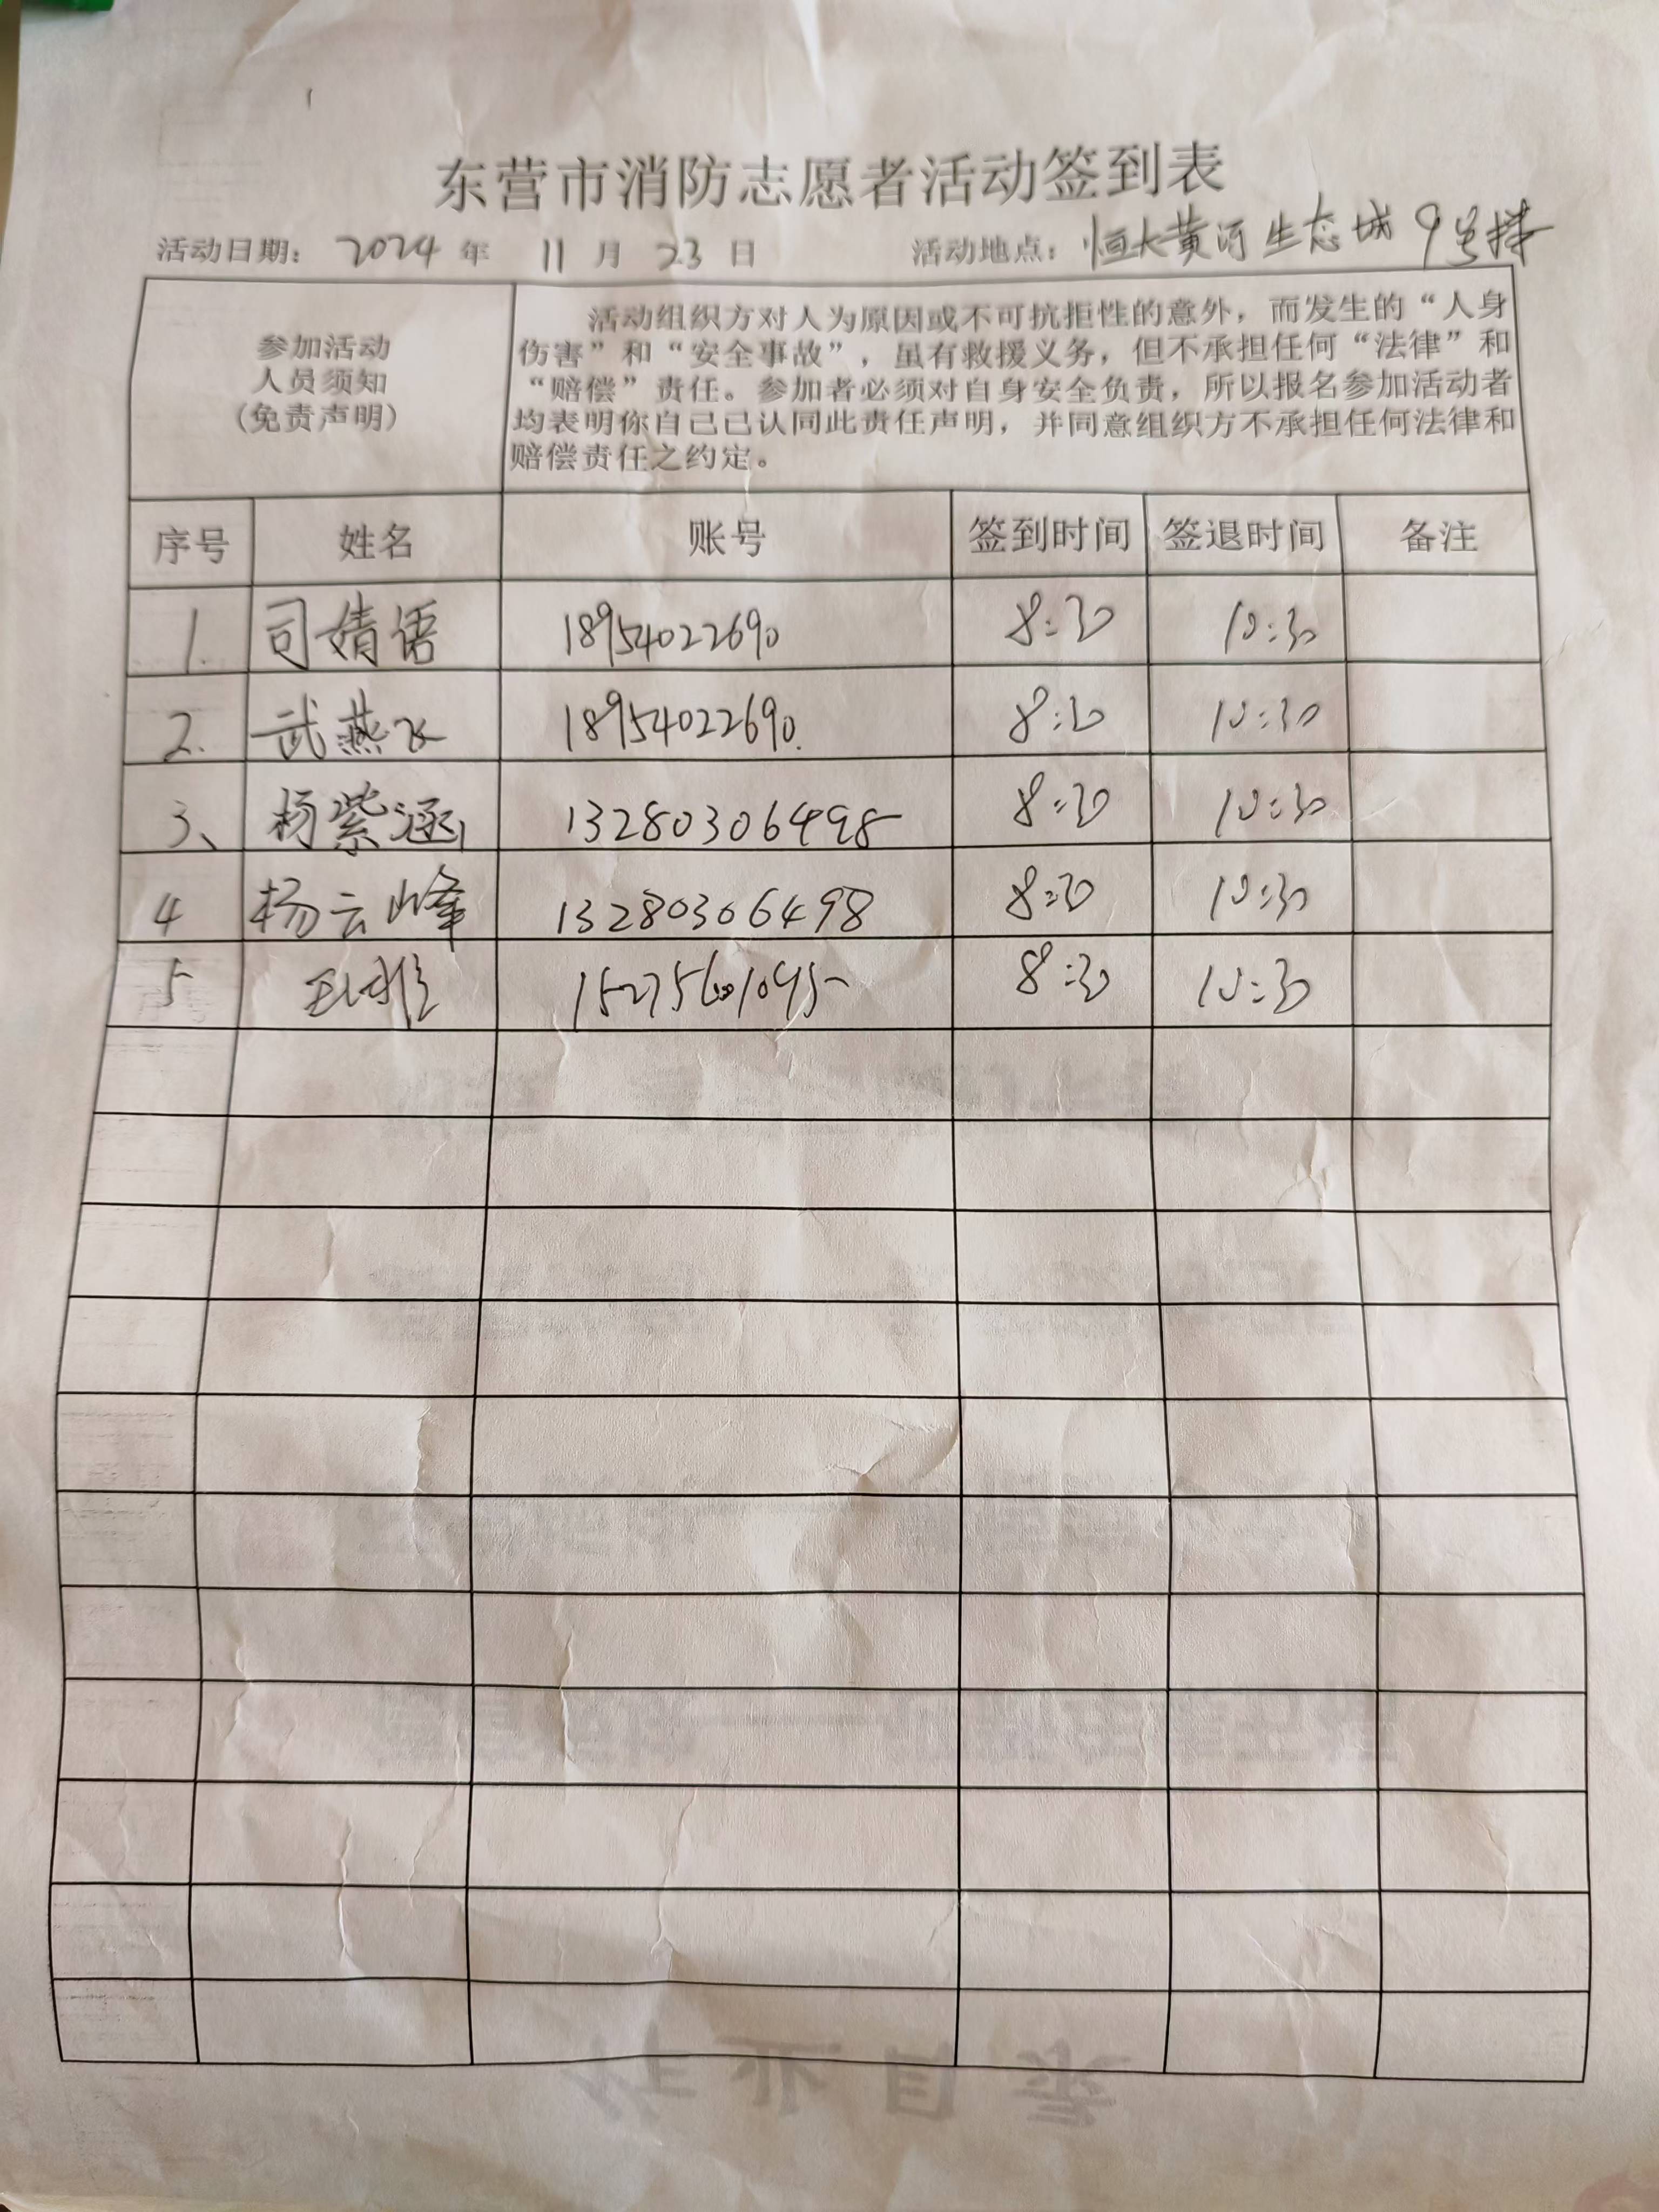 东营市消防志愿者活动签到表
活动日期: 2024 年 11 月 23 日 活动地点: 恒大黄河生态城 9号楼
参加活动
人员须知
(免责声明)
活动组织方对人为原因或不可抗拒性的意外，而发生的“人身
伤害”和“安全事故”，虽有救援义务，但不承担任何“法律”和
“赔偿”责任。参加者必须对自身安全负责，所以报名参加活动者
均表明你自己已认同此责任声明，并同意组织方不承担任何法律和
赔偿责任之约定。
序号 姓名 账号 签到时间 签退时间 备注
1. 司婧语 18954022690 8:30 10:30
2. 武燕飞 18954022690. 8:30 10:30
3、 杨紫涵 13280306498 8:30 10:30
4 杨云峰 13280306498 8:30 10:30
5 8:30 10:30
作业目录